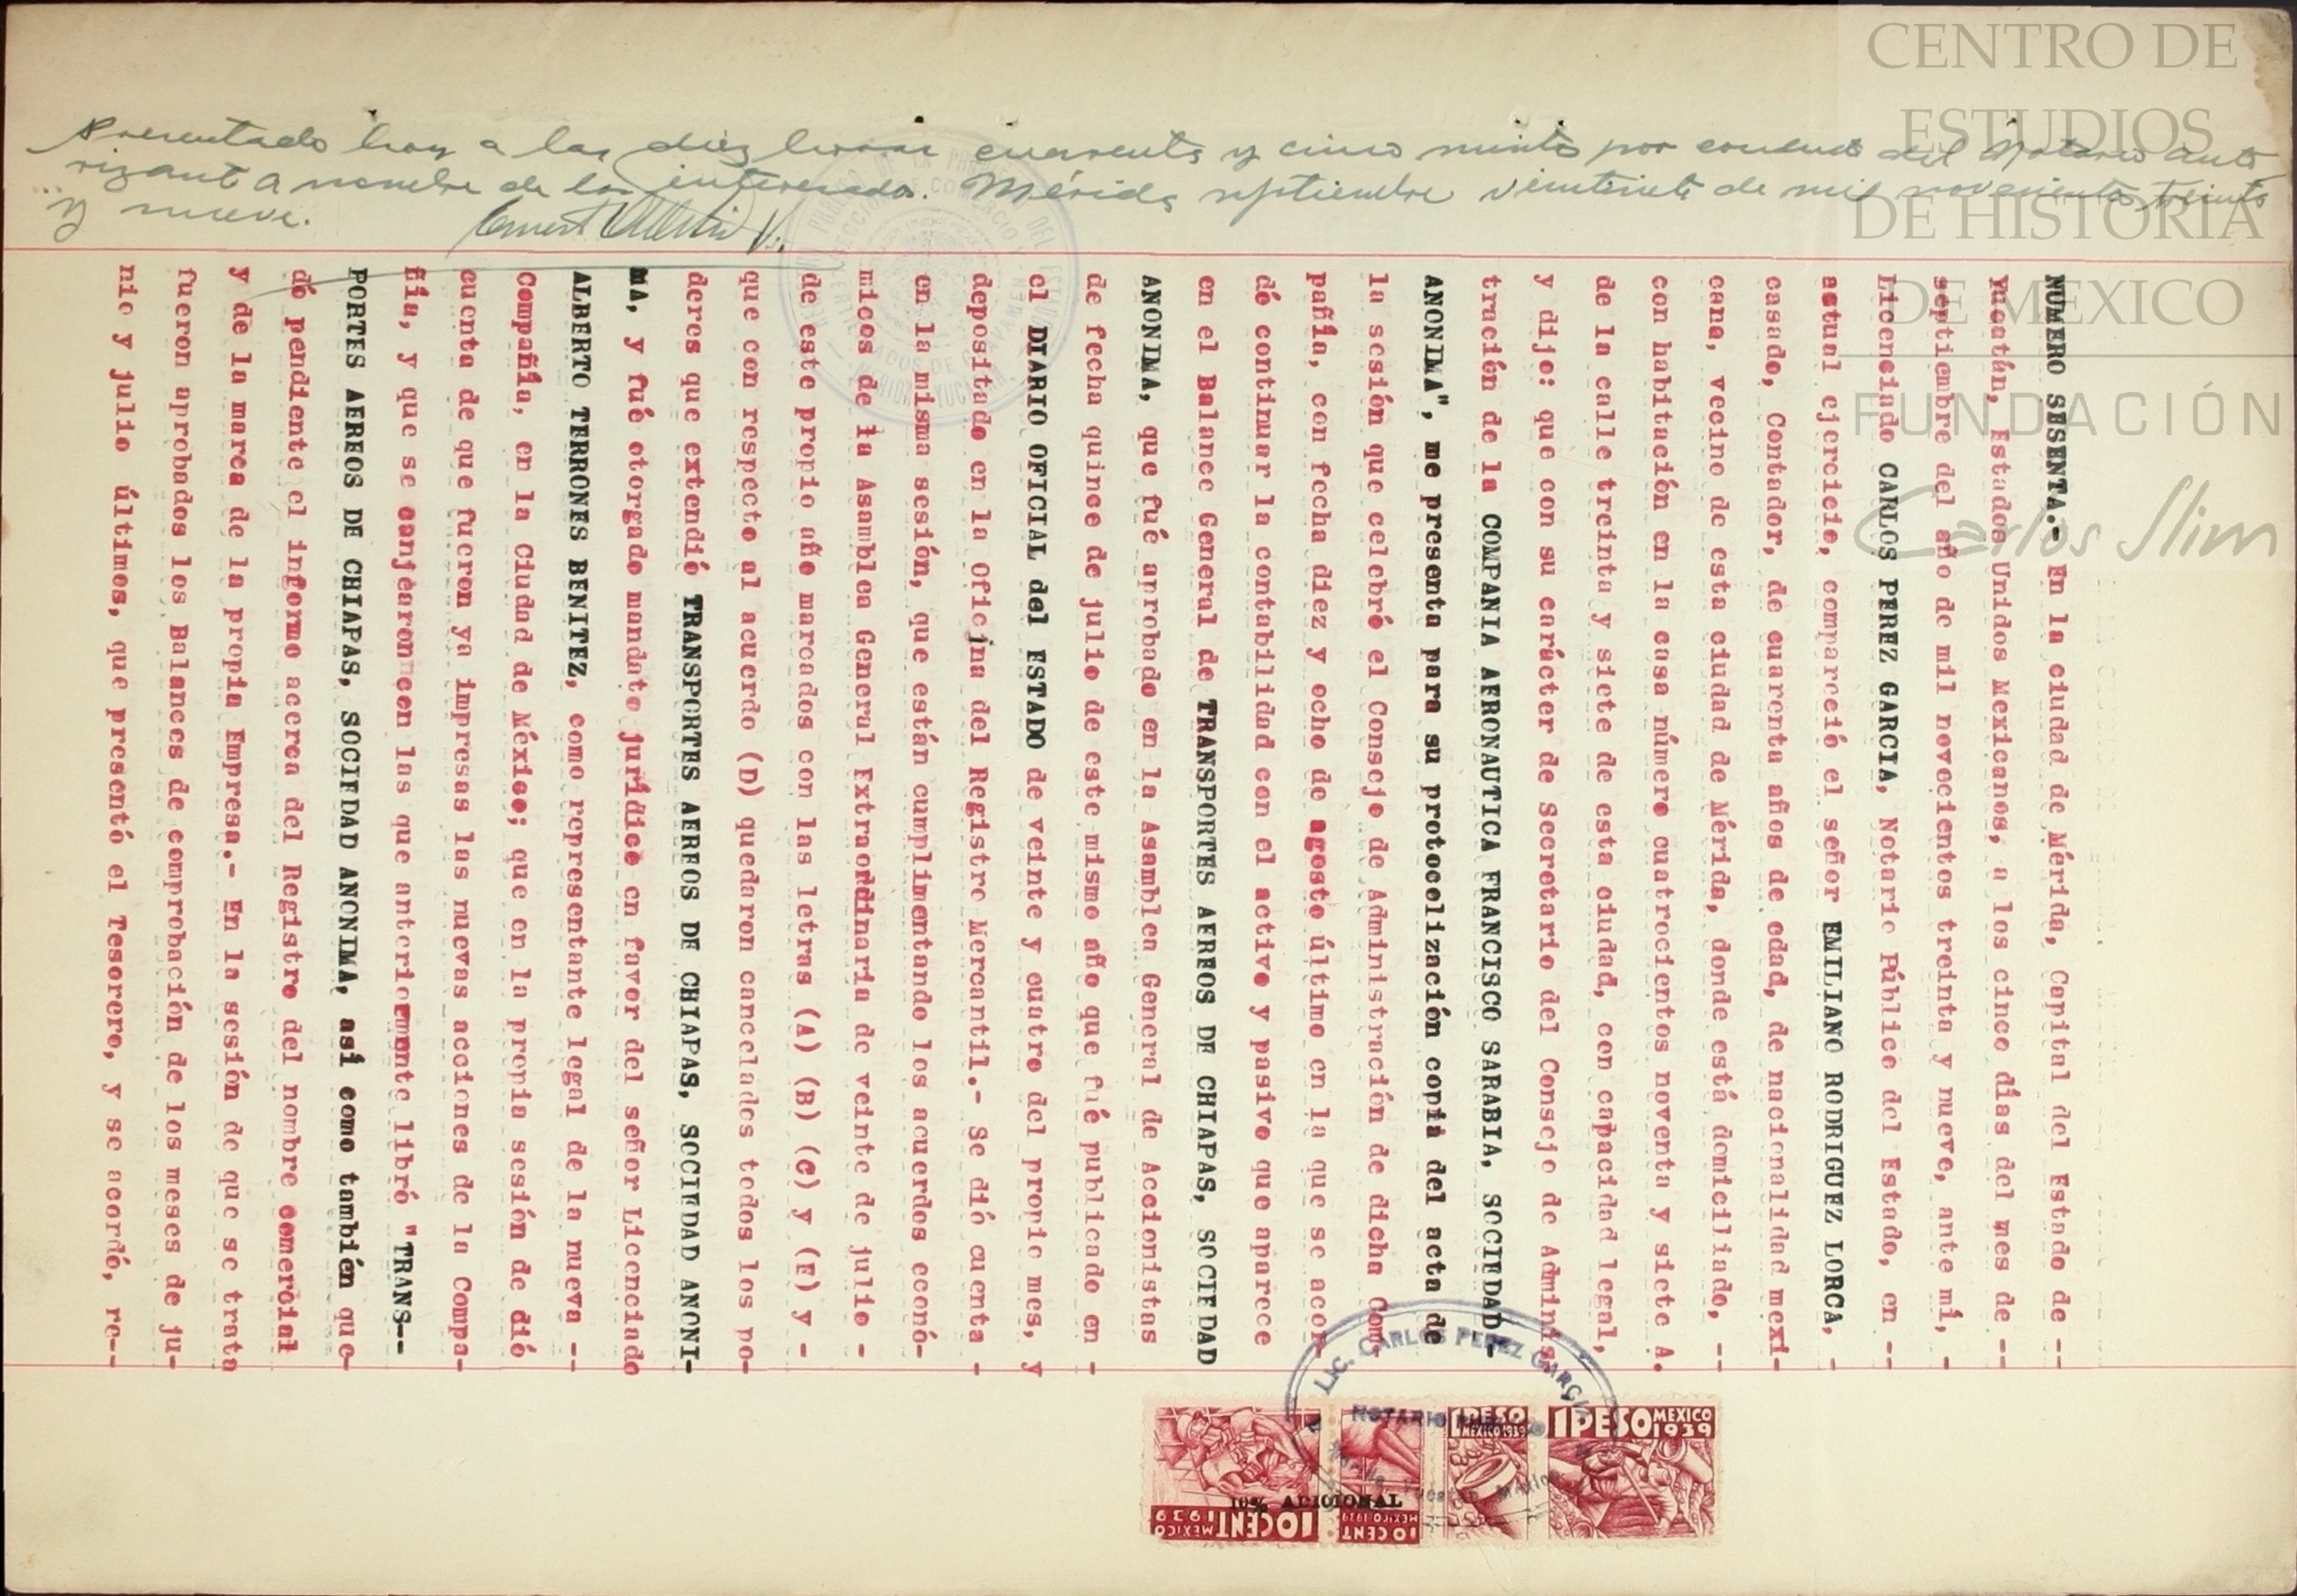 Presentado hoy a las diez horas cuarenta y cinco minutos por conducto del Notario auto
rizante a nombre de los interesados. Mérida septiembre veintisiete de mil novecientos treinta
y nueve.
NUMERO SESENTA.- En la ciudad de Mérida, Capital del Estado de --
Yucatán, Estados Unidos Mexicanos, a los cinco días del mes de --
septiembre del año de mil novecientos treinta y nueve, ante mí, -
Licenciado CARLOS PEREZ GARCIA, Notario Público del Estado, en --
actual ejercicio, compareció el señor EMILIANO RODRIGUEZ LORCA, -
casado, Contador, de cuarenta años de edad, de nacionalidad mexi-
cana, vecino de esta ciudad de Mérida, donde está domiciliado, --
con habitación en la casa número cuatrocientos noventa y siete A.
de la calle treinta y siete de esta ciudad, con capacidad legal,
y dijo: que con su carácter de Secretario del Consejo de Adminis-
tración de la COMPANIA AERONAUTICA FRANCISCO SARABIA, SOCIEDAD -
ANONIMA", me presenta para su protocolización copia del acta de
la sesión que celebró el Consejo de Administración de dicha Com-
pañía, con fecha diez y ocho de agosto último en la que se acor
dó continuar la contabilidad con el activo y pasivo que aparece
en el Balance General de TRANSPORTES AEREOS DE CHIAPAS, SOCIEDAD
ANONIMA, que fué aprobado en la Asamblea General de Accionistas
de fecha quince de julio de este mismo año que fué publicado en -
el DIARIO OFICIAL del ESTADO de veinte y cuatro del propio mes, y
depositado en la Oficina del Registro Mercantil.- Se dió cuenta -
en la misma sesión, que están cumplimentando los acuerdos econó-
micos de la Asamblea General Extraordinaria de veinte de julio -
de este propio año marcados con las letras (A) (B) (C) y (E) y -
que con respecto al acuerdo (D) quedaron cancelados todos los po-
deres que extendió TRANSPORTES AEREOS DE CHIAPAS, SOCIEDAD ANONI-
MA, y fué otorgado mandato jurídico en favor del señor Licenciado
ALBERTO TERRONES BENITEZ, como representante legal de la nueva --
Compañía, en la Ciudad de México; que en la propia sesión de dió
cuenta de que fueron ya impresas las nuevas acciones de la Compa-
ñía, y que se canjearon con las que anteriormente libró "TRANS--
PORTES AEREOS DE CHIAPAS, SOCIEDAD ANONIMA, así como también que-
dó pendiente el informe acerca del Registro del nombre comercial
y de la marca de la propia Empresa.- En la sesión de que se trata
fueron aprobados los Balances de comprobación de los meses de ju-
nio y julio últimos, que presentó el Tesorero, y se acordó, re--
LIC. CARLOS PEREZ GARCIA
NOTARIO PUBLICO
Mérida, Yucatán, México
1 PESO MEXICO 1939
1 PESO MEXICO 1939
10 CENT MEXICO 1939
10 CENT MEXICO 1939
10% ADICIONAL
CENTRO DE
ESTUDIOS
DE HISTORIA
DE MEXICO
FUNDACIÓN
Carlos Slim